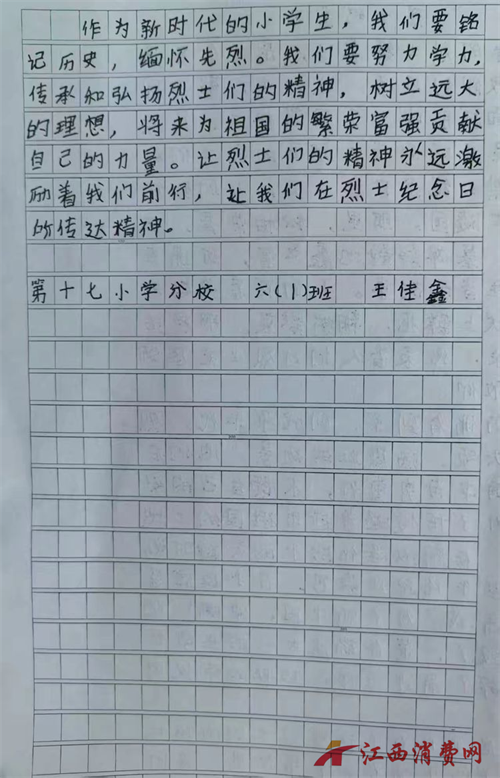 作为新时代的小学生，我们要铭
记历史，缅怀先烈。我们要努力学力，
传承和弘扬烈士们的精神，树立远大
的理想，将来为祖国的繁荣富强贡献
自己的力量。让烈士们的精神永远激
励着我们前行，让我们在烈士纪念日
所传达精神。
第十七小学分校 六(1)班 王佳鑫
江西消费网